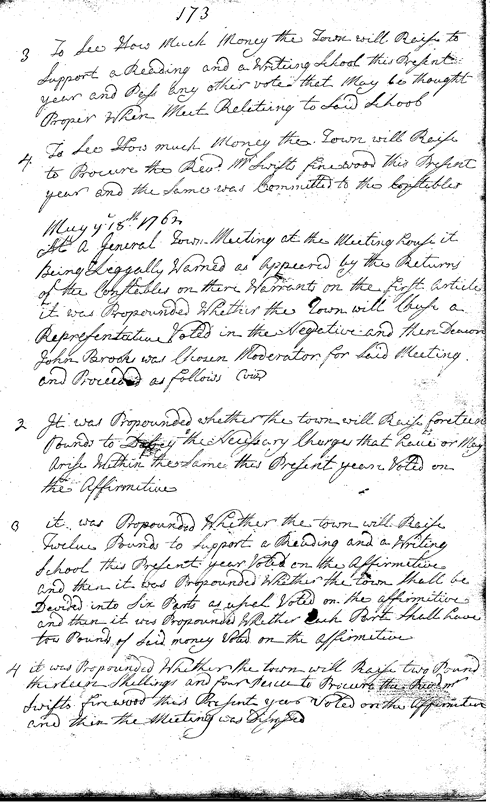 173
3 To See How Much Money the Town will Raise to
Support a Reading and a Writing School this Present
year and Pass any other vote that May be thought
Proper When Meet Relateing to Said School
4 To See How much Money the Town will Raise
to Procure the Revd Mr Swifts fire wood this Present
year and the Same was Committed to the Constables
May ye 18th 1762
At a General Town Meeting at the Meeting house it
Being Leggally Warned as Appeered by the Returns
of the Constables on there Warrants on the first Article
it was Propounded Whether the Town will Chuse a
Representative Voted in the Negative and then Deacon
John Brooks was Chosen Moderator for Said Meeting
and Proceeded as follows
2 It was Propounded whether the town will Raise foreteen
Pounds to the Necessary Charges that have or May
Arise Within the Same this Present year Voted on
the Affirmitive
3 it was Propounded Whether the town will Raise
Twelve Pounds to Support a Reading and a Writing
School this Present year Voted on the Affirmitive
and then it was Propounded Whether the town Shall be
Devided into Six Parts as usual Voted on the affirmitive
and then it was Propounded Whether Each Part Shall have
too Pound of Said money Voted on the affirmitive
4 it was Propounded Whether the town will Raise two Pound
thirteen Shillings and four Pence to Procure the Revd mr
Swifts fire wood this Present year Voted on the Affirmitive
and then the Meeting was